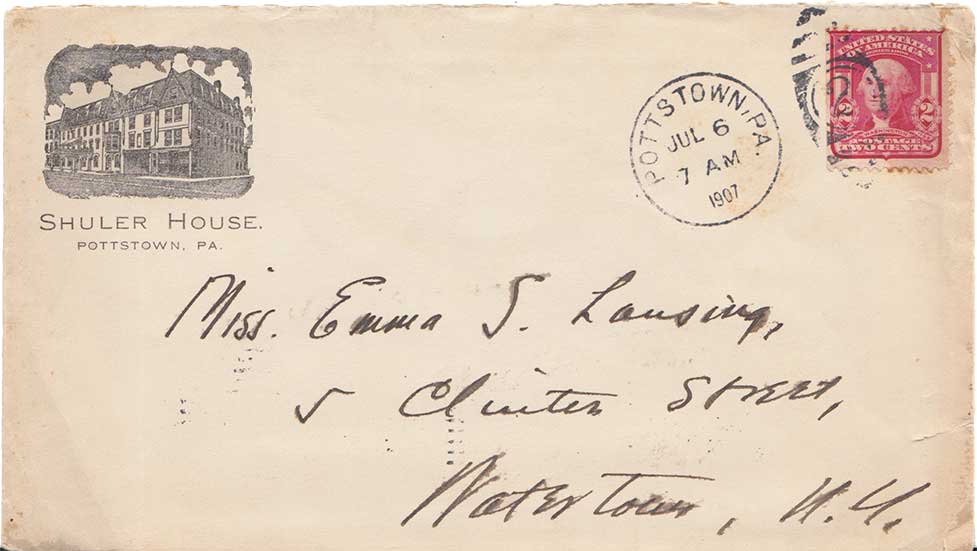 SHULER HOUSE.
POTTSTOWN, PA.
POTTSTOWN, PA.
JUL 6
7 AM
1907
UNITED STATES
OF AMERICA
2 2
POSTAGE
TWO CENTS
Miss. Emma S. Lansing,
5 Clinton Street,
Watertown, N.Y.